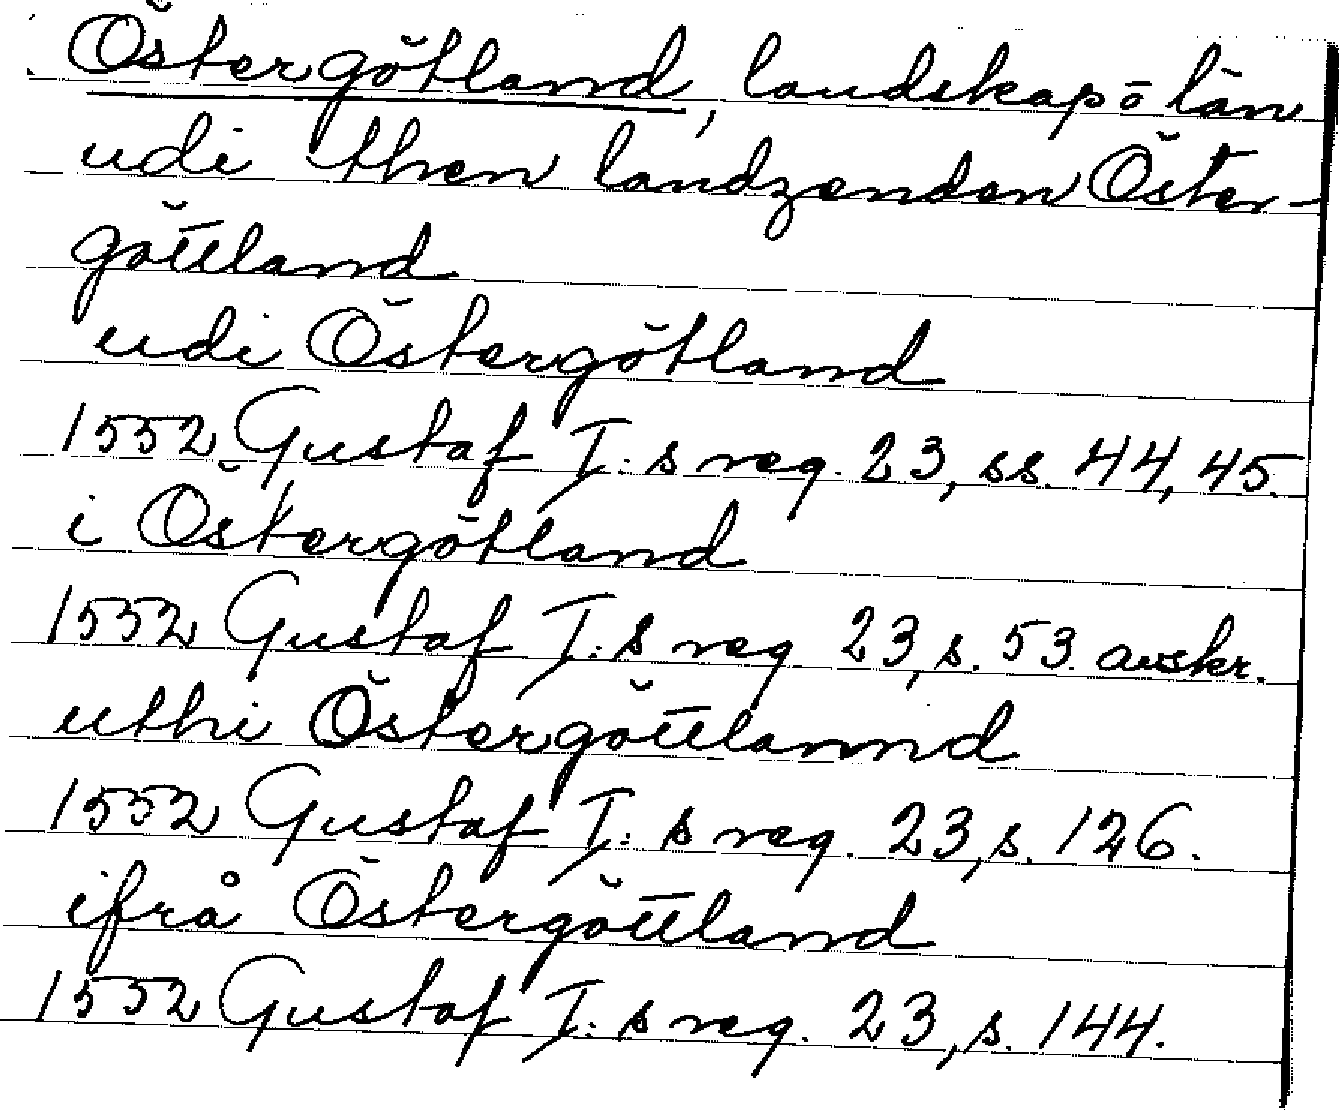 Östergötland, landskap o län
udi then landzenden Öster-
göttland
udi Östergötland
1552 Gustaf I:s reg. 23, ss. 44, 45.
i Östergötland
1552 Gustaf I:s reg. 23, s. 53. avskr.
uthi Östergöttlannd
1552 Gustaf I:s reg. 23, s. 126.
ifrå Östergöttland
1552 Gustaf I:s reg. 23, s. 144.